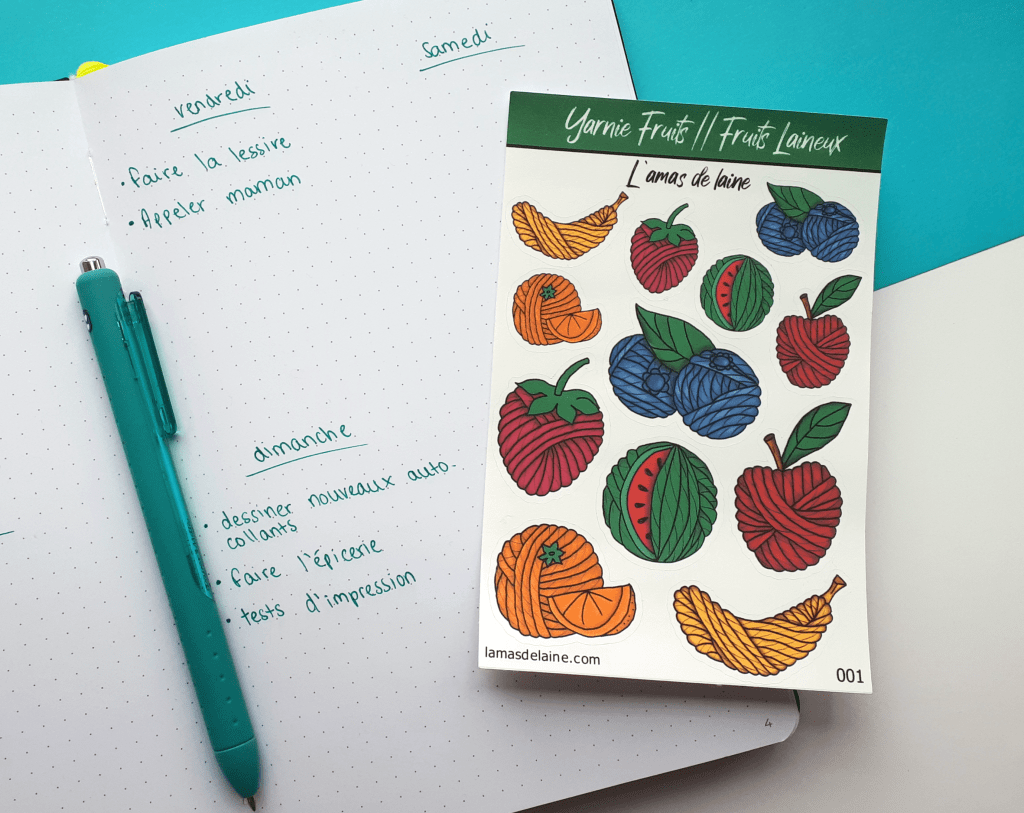 vendredi
• faire la lessive
• Appeler maman
samedi
dimanche
• dessiner nouveaux auto-
collants
• faire l'épicerie
• tests d'impression
4
Yarnie Fruits // Fruits Laineux
L'amas de laine
lamasdelaine.com
001